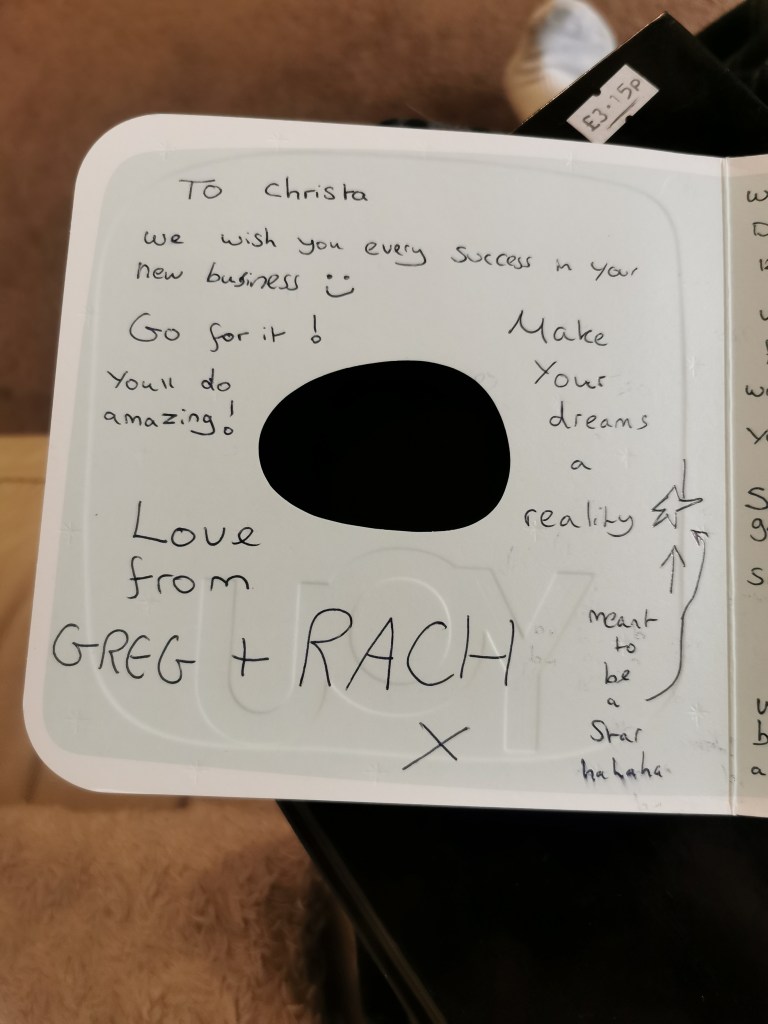 £3.15p
To Christa
we wish you every success in your
new business :)
Go for it !
Youll do
amazing!
Make
Your
dreams
a
reality
Love
from
GREG + RACH
X
meant
to
be
a
Star
hahaha